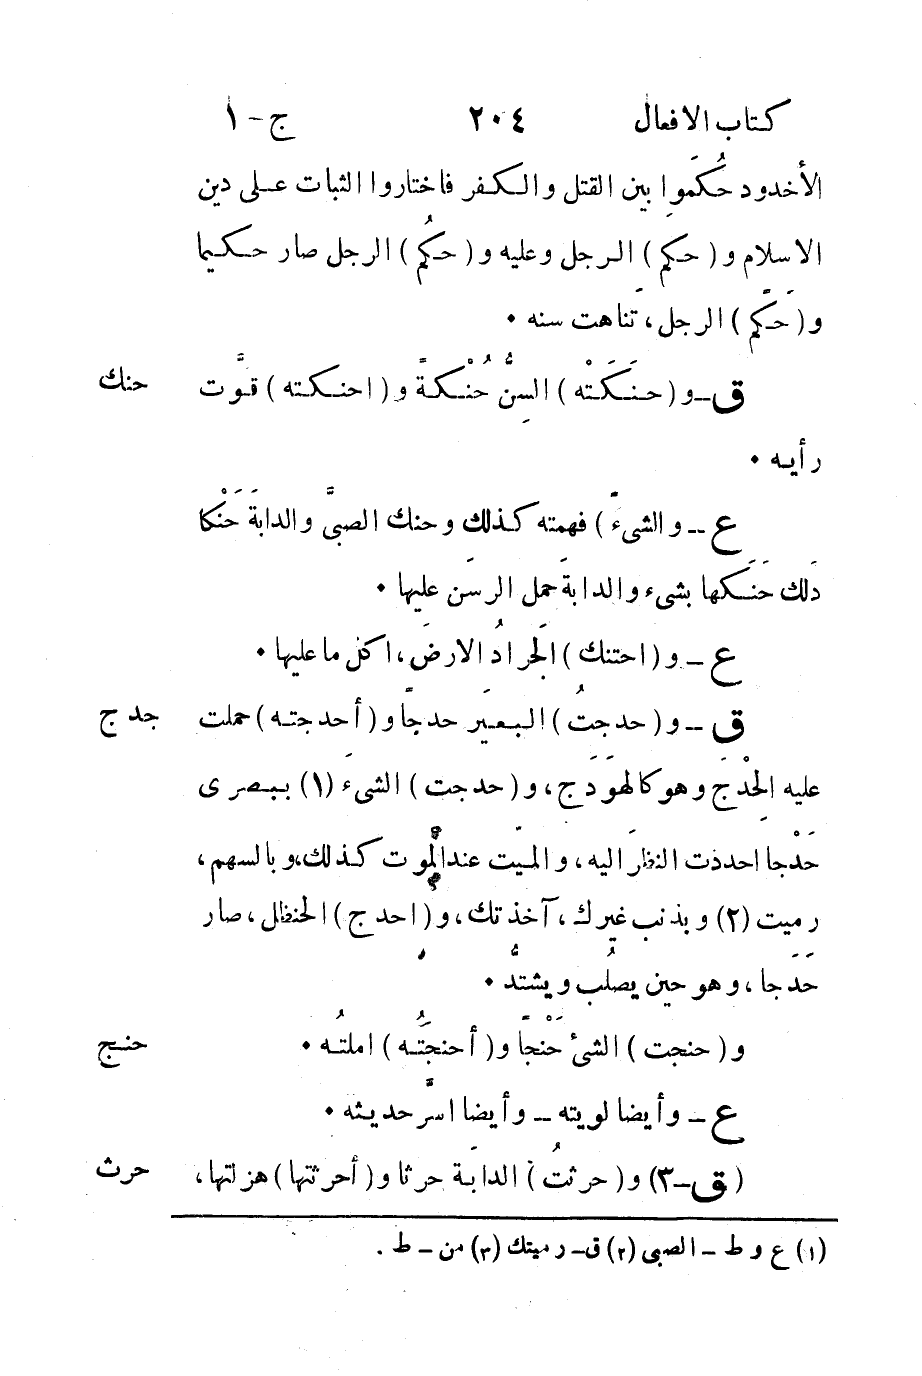 كتاب الافعال ٢٠٤ ج - ١
الأخدود حُكِّموا بين القتل والكفر فاختاروا الثبات على دين
الاسلام و ( حكم ) الرجل وعليه و ( حكُم ) الرجل صار حكيما
و ( حَكَّم ) الرجل ، تناهت سنه ٠
ق - و ( حنَكَتْه ) السنُّ حُنْكةً و ( احنكته ) قوَّت حنك
رأيه ٠
ع - و الشىءَ ) فهمته كذلك وحنك الصبىَّ والدابةَ حَنْكا
دَلَك حَنَكها بشىء والدابةَ حمل الرسَن عليها ٠
ع - و ( احتنك ) الجَرادُ الارضَ ، اكل ما عليها ٠
ق - و ( حدجتُ ) البعيرَ حدجًا و ( أحدجته ) حملت حدج
عليه الحِدْجَ وهو كالهَودَج ، و ( حدجت ) الشىءَ (١) ببصرى
حَدْجا احددت النظرَ اليه ، والميّت عند الموت كذلك ، وبالسهم ،
رميت (٢) وبذنب غيرك ، آخذتك ، و ( احدج ) الحنظل ، صار
حَدَجا ، وهو حين يصلُب ويشتدُّ ٠
و ( حنجت ) الشىءَ حَنْجًا و ( أحنجَتُه ) املتُه ٠ حنج
ع - وأيضا لويته - وأيضا اسرَّ حديثه ٠
( ق - ٣) و ( حرثتُ ) الدابةَ حرثا و ( أحرثتها ) هزلتها ، حرث
(١) ع و ط - الصبى (٢) ق - رميتك (٣) من - ط .